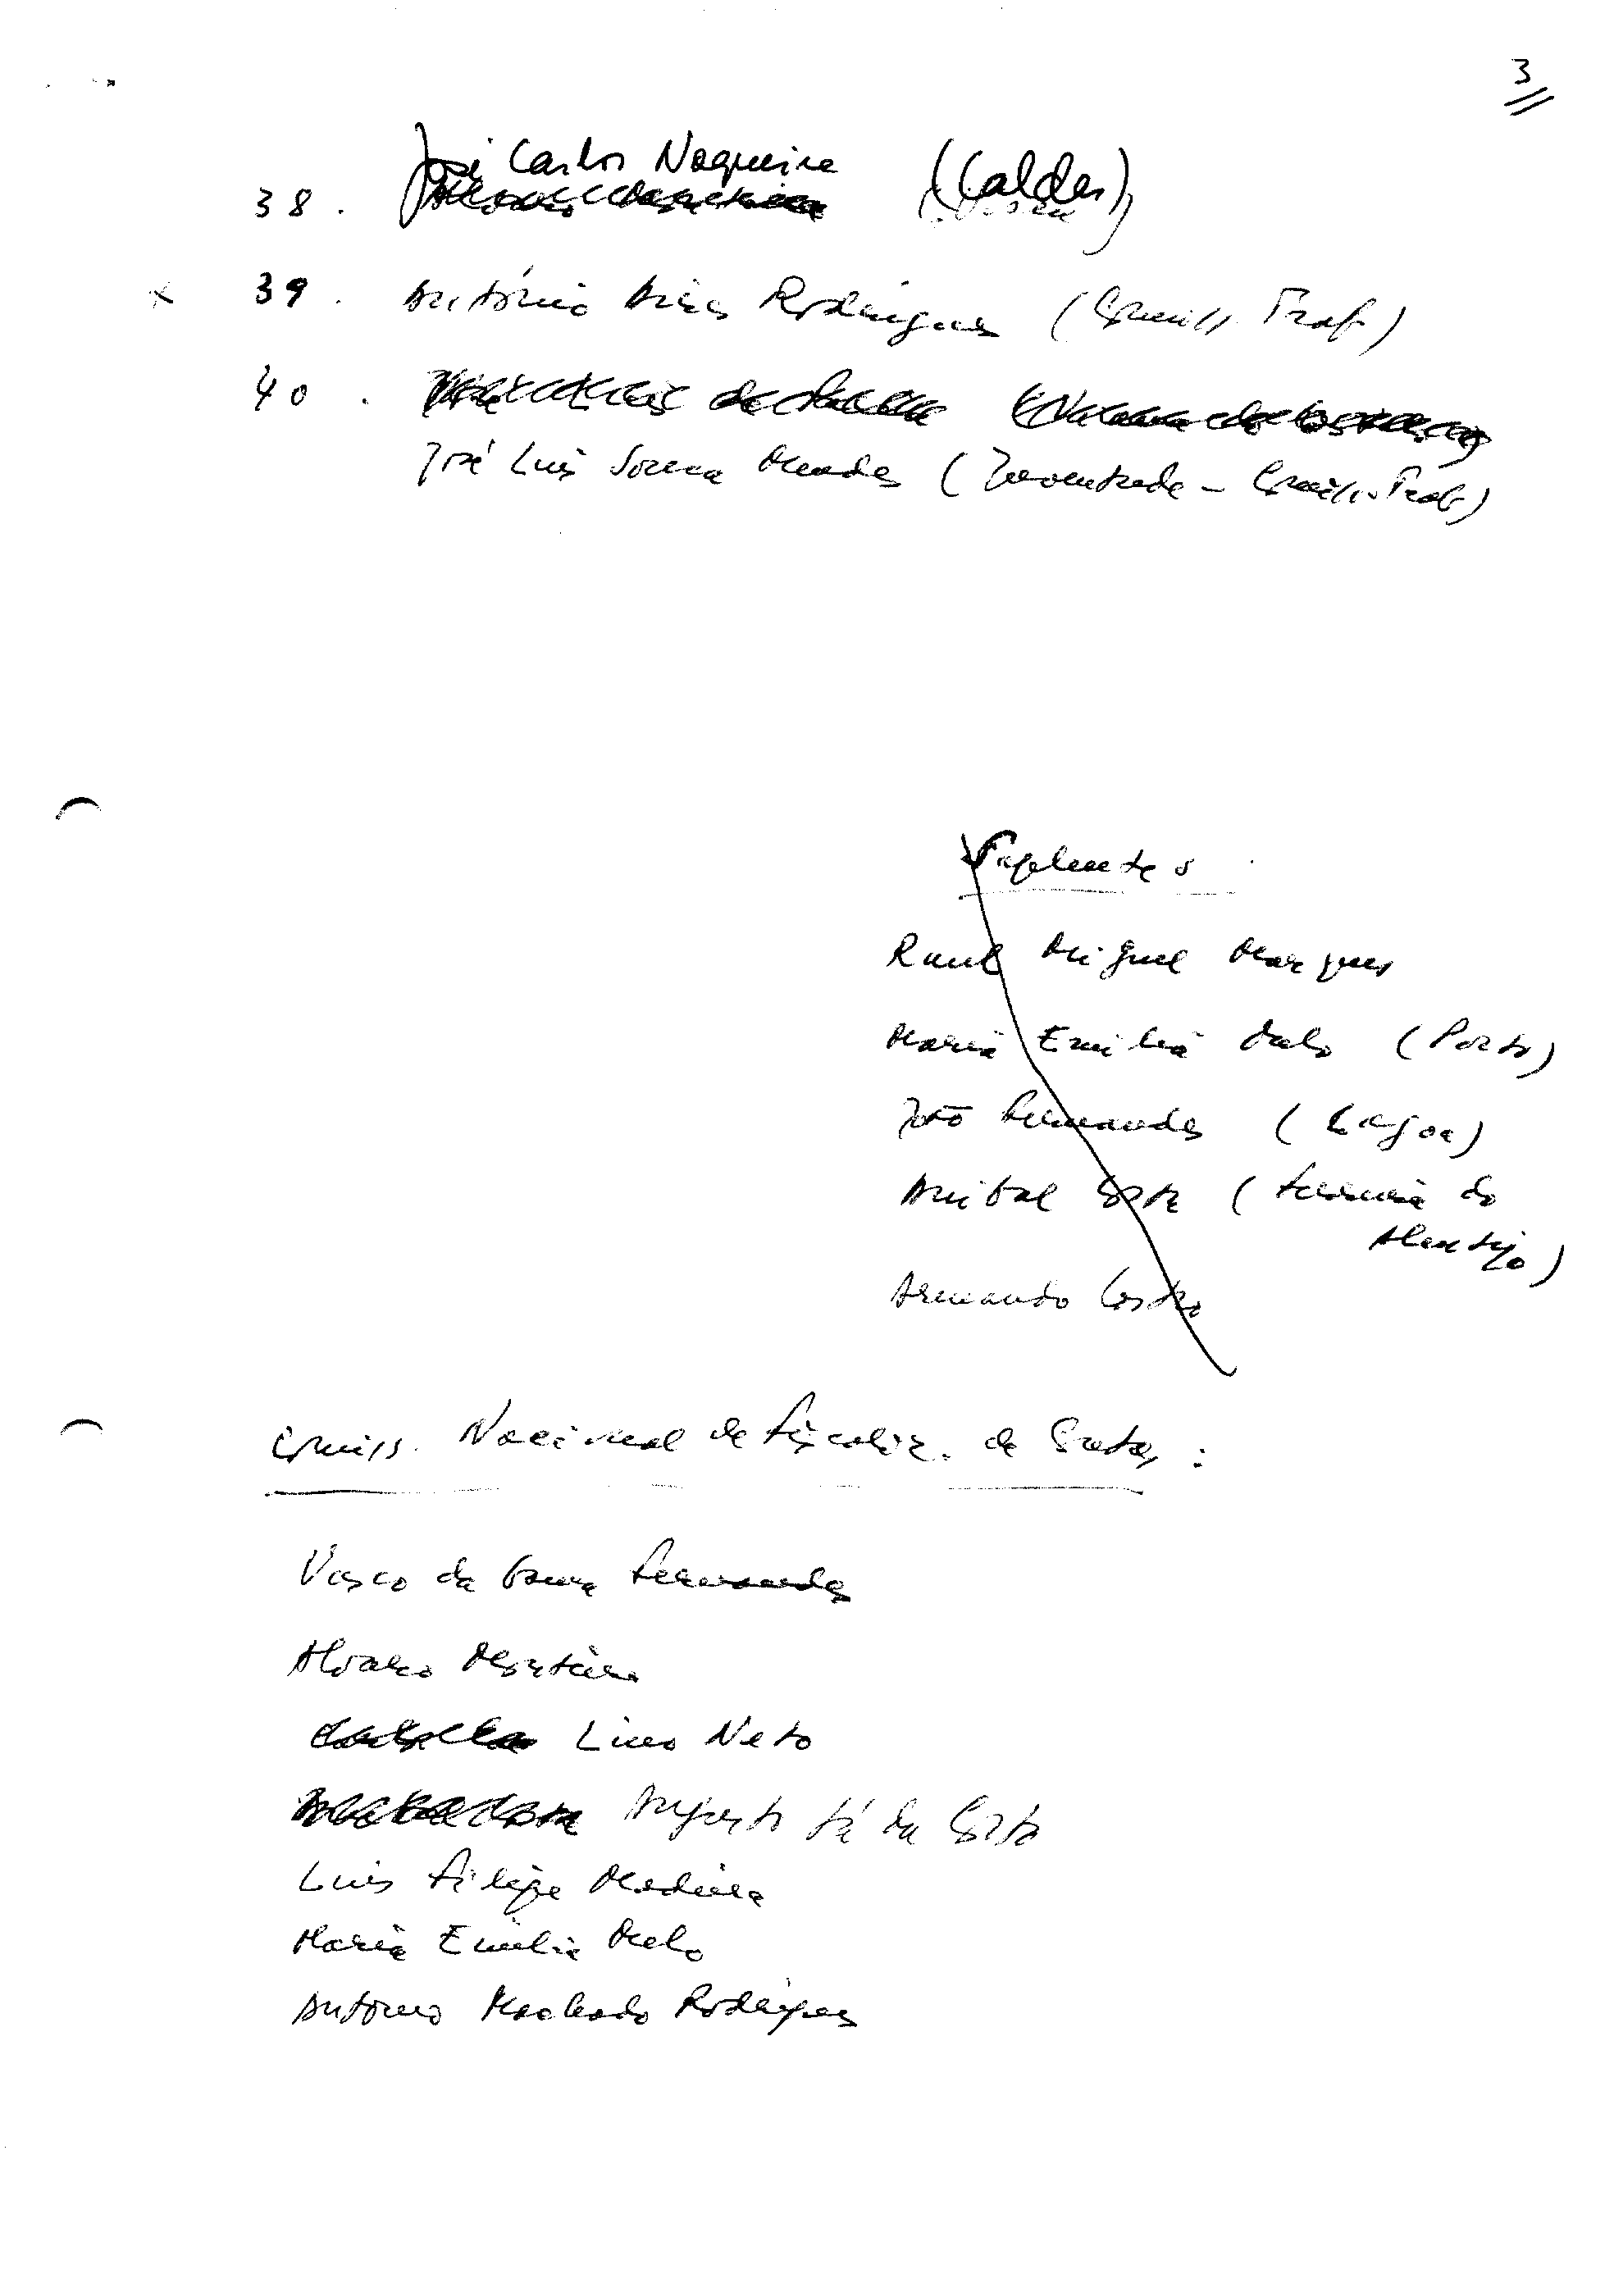 3
38. José Carlos Nogueira (Caldas)
x 39. António Aires Rodrigues (Comiss. Trab.)
40.
José Luís Sousa Mendes (Juventude - Comiss. Trab)
Suplentes
Raul Miguel Marques
Maria Emília Melo (Porto)
João Fernandes (Lagoa)
Anibal Costa (Ferreira do
Alentejo)
Armando Castro
Comiss. Nacional de Fiscaliz. de Contas:
Vasco da Gama Fernandes
Alvaro Monteiro
Lino Neto
Augusto Sá da Costa
Luís Filipe Madeira
Maria Emília Melo
António Machado Rodrigues